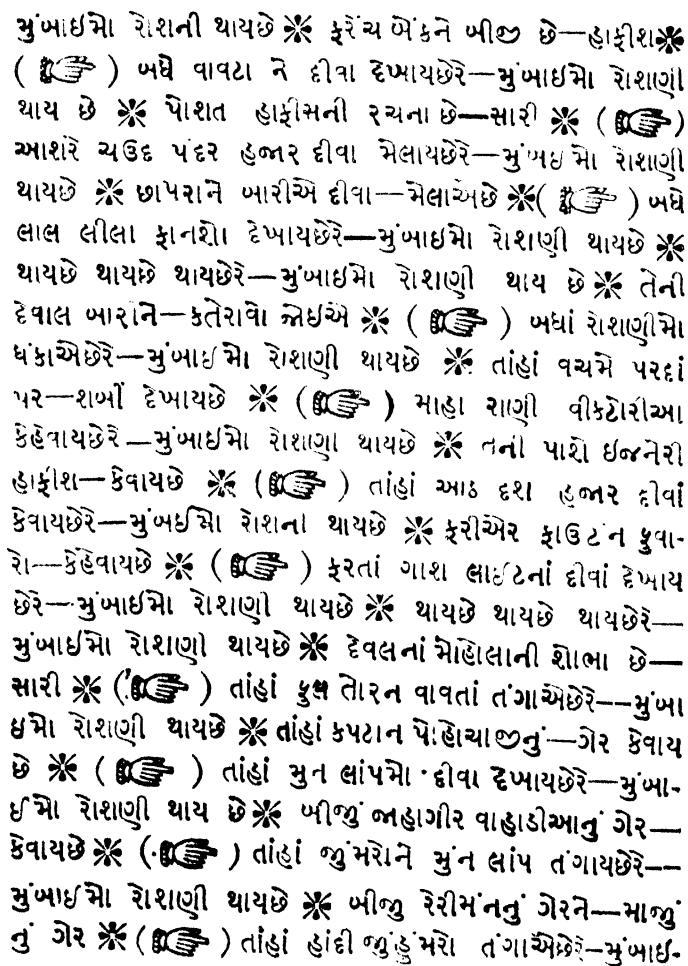 મુંબાઈમાે રાેશની થાયછે ✻ ફરેંચ બેંકને બીજી છે—હાફીશ✻
( ☞ ) બધે વાવટા ને દીવા દેખાયછેરે—મુંબાઇમાે રાેશણી
થાય છે ✻ પાેશત હાફીસની રચના છે—સારી ✻ ( ☞ )
આશરે ચઉદ પંદર હજાર દીવા મેલાયછેરે—મુંબઇમાે રાેશણી
થાયછે ✻ છાપરાને બારીએ દીવા—મેલાએછે ✻( ☞ ) બધે
લાલ લીલા ફાનશાે દેખાયછેરે—મુંબાઇમાે રાેશણી થાયછે ✻
થાયછે થાયછે થાયછેરે—મુંબાઇમાે રાેશણી થાય છે ✻ તેની
દેવાલ બારીને—કતેરાવાે જોઇએ ✻ ( ☞ ) બધાં રાેશણીમાે
ધંકાએછેરે—મુંબાઇમાે રાેશણી થાયછે ✻ તાંહાં વચમે પરદાં
પર—શબી દેખાયછે ✻ ( ☞ ) માહા રાણી વીકટાેરીઆ
કેહેવાયછેરે—મુંબાઇમાે રાેશણી થાયછે ✻ તેની પાશે ઇજનેરી
હાફીશ—કેવાયછે ✻ ( ☞ ) તાંહાં આઠ દશ હજાર દીવાં
કેવાયછેરે—મુંબઈમાે રાેશની થાયછે ✻ ફરીએર ફાઉટંન ફુવા-
રાે—કેહેવાયછે ✻ ( ☞ ) ફરતાં ગાશ લાઈટનાં દીવાં દેખાય
છેરે—મુંબાઈમાે રાેશણી થાયછે ✻ થાયછે થાયછે થાયછેરે—
મુંબાઈમાે રાેશણી થાયછે ✻ દેવલનાં માેહાેલાની શાેભા છે—
સારી ✻ ( ☞ ) તાંહાં ફુલ તાેરન વાવતાં તંગાએછેરે——મુંબા
ઇમાે રાેશણી થાયછે ✻ તાંહાં કપટાન પાેહાેચાજીનું—ગેર કેવાય
છે ✻ ( ☞ ) તાંહાં મુન લાંપમાે દીવા દેખાયછેરે—મુંબા-
ઈમાે રાેશણી થાય છે ✻ બીજું જાહાગીર વાહાડીઆનું ગેર—
કેવાયછે ✻ ( ☞ ) તાંહાં જુંમરાેને મુંન લાંપ તંગાયછેરે——
મુંબાઈમાે રાેશણી થાયછે ✻ બીજુ રેરીમંનનું ગેરને—માજું
નું ગેર ✻ ( ☞ ) તાંહાં હાંદી જુંહુંમરાે તંગાએછેરે—મુંબાઇ-